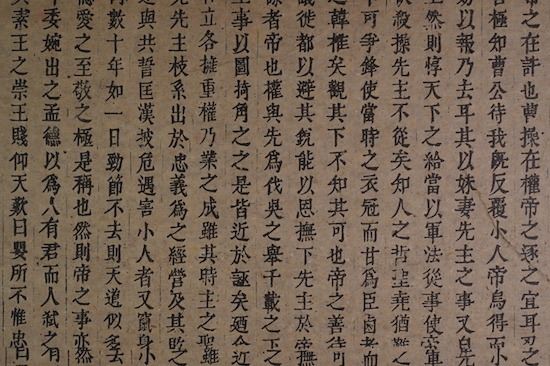 之在許也曹操在權帝之逐之宜耳刃之
極知曹公待我旣反覆小人帝烏得而小
以報乃去耳其以妹妻先主之事又皇先
主然則惇天下之給當以軍法從事使帝軍
欲殺操先主不從矣知人之哲聖堯猶難之
下可爭鋒使當時之衣冠而甘爲臣鹵者而
之韓權矣觀其下不知其可也帝之善待可
徒都以避其銳能以恩撫下先主於帝撫
者帝也權與先爲伐吳之舉千載之下之
王事以圖掎角之之是皆近於誣矣廼令近
立各擁重權乃業之成雖其時主之聖雖
先先主枝系出於忠義爲之經營及其敗之
之與共誓匡漢披危遇害小人者又竄身小
數十年如一日勁節不去則天道似多去
愛之至敬之極是稱也然則帝之事亦然
委婉出之孟德以爲人有君而人弒之有
其素王之崇王賤仰天歎曰嬰所不惟忠